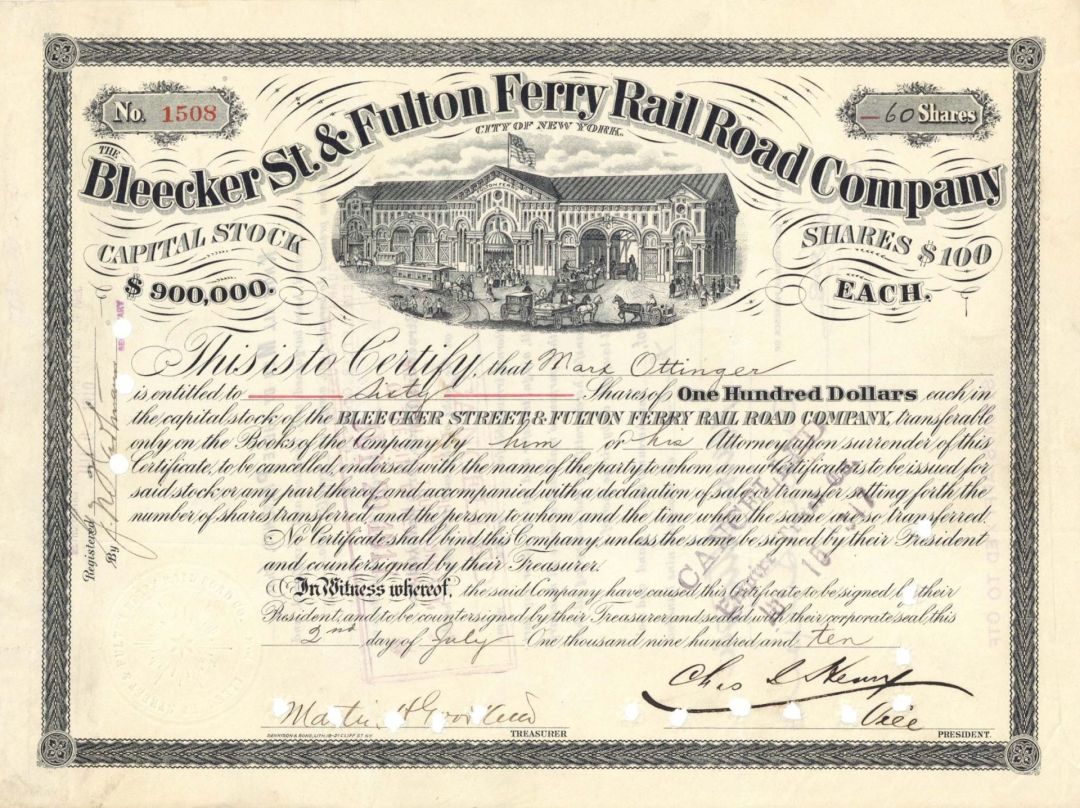 No. 1508
60 Shares
THE
Bleecker St. & Fulton Ferry Rail Road Company
CITY OF NEW YORK.
CAPITAL STOCK
$ 900,000.
SHARES $100
EACH.
This is to Certify, that Marx Ottinger
is entitled to Sixty Shares of One Hundred Dollars each in
the capital stock of the BLEECKER STREET & FULTON FERRY RAIL ROAD COMPANY, transferable
only on the Books of the Company by him or his Attorney upon surrender of this
Certificate, to be cancelled, endorsed with the name of the party to whom a new Certificate is to be issued for
said stock or any part thereof, and accompanied with a declaration of sale or transfer setting forth the
number of shares transferred, and the person to whom and the time when the same are so transferred.
No Certificate shall bind this Company, unless the same be signed by their President
and countersigned by their Treasurer.
In Witness whereof, the said Company have caused this Certificate to be signed by their
President, and to be countersigned by their Treasurer and sealed with their corporate seal, this
2nd day of July One thousand nine hundred and ten
Chas
Vice
TREASURER
PRESIDENT.
DENNISON & SONS, LITH. 19-21 CLIFF ST. N.Y.
Registered
By
CANCELLED